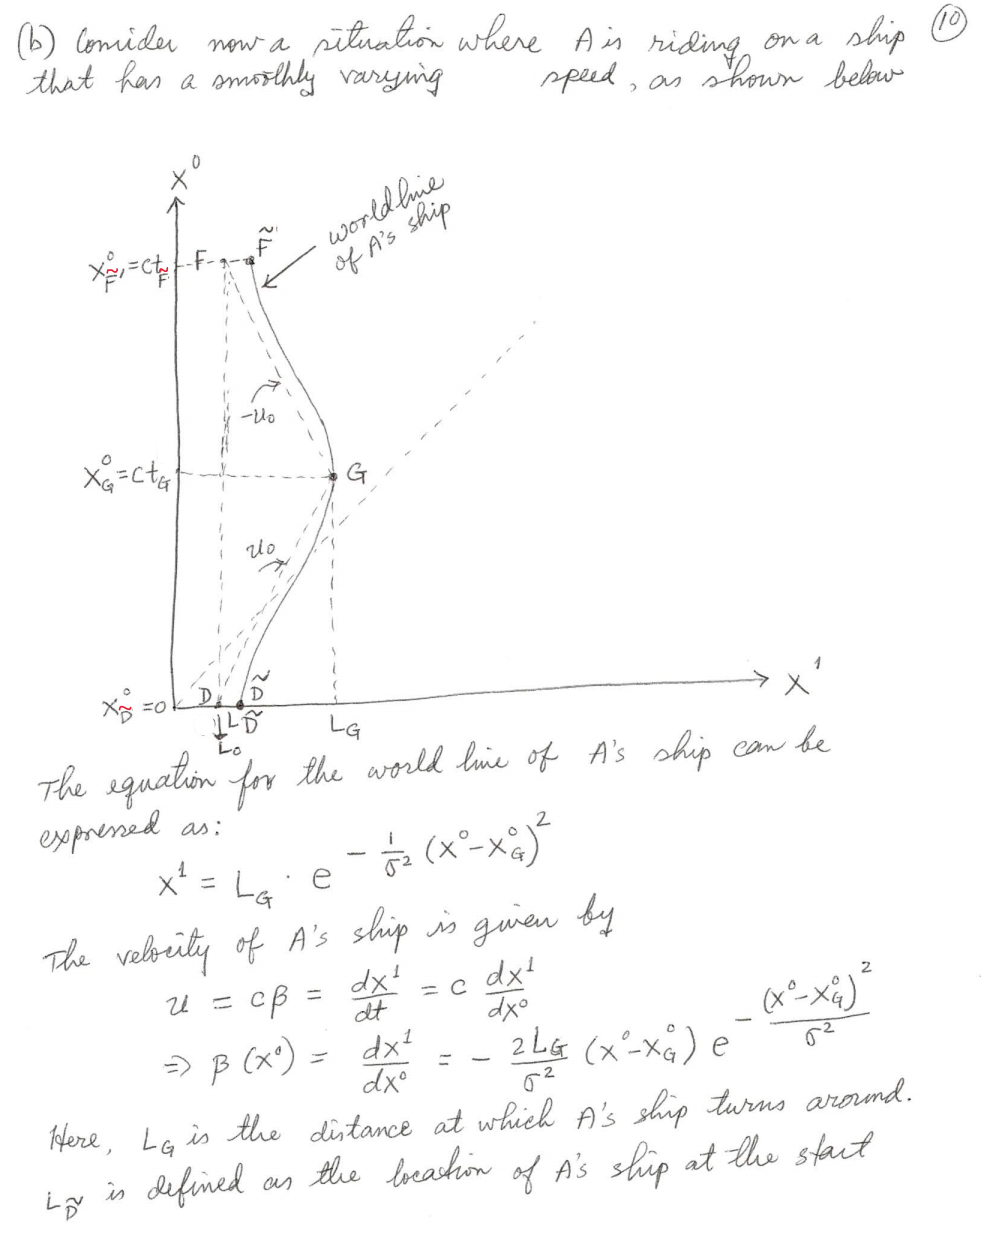 (b) Consider now a situation where A is riding on a ship
⑩
that has a smoothly varying speed, as shown below
X⁰
world line
of A's ship
X⁰_F̃' = ct_F̃
F
F̃'
-u₀
X⁰_G = ct_G
G
u₀
X⁰_D̃ = 0
D
D̃
X¹
L₀
L_D̃
L_G
The equation for the world line of A's ship can be
expressed as:
x¹ = L_G · e^{- 1/σ² (x⁰ - x⁰_G)²}
The velocity of A's ship is given by
u = cβ = dx¹/dt = c dx¹/dx⁰
⇒ β(x⁰) = dx¹/dx⁰ = - 2L_G/σ² (x⁰ - x⁰_G) e^{- (x⁰ - x⁰_G)²/σ²}
Here, L_G is the distance at which A's ship turns around.
L_D̃ is defined as the location of A's ship at the start